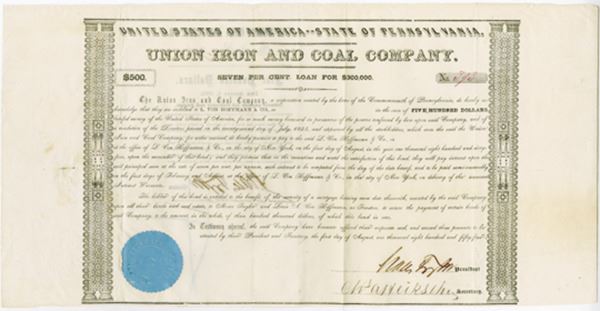 UNITED STATES OF AMERICA--STATE OF PENNSYLVANIA.
UNION IRON AND COAL COMPANY.
$500.
SEVEN PER CENT. LOAN FOR $300,000.
No
The Union Iron and Coal Company, a corporation created by the laws of the Commonwealth of Pennsylvania, do hereby
acknowledge that they are indebted to L. VON HOFFMANN & CO., in the sum of FIVE HUNDRED DOLLARS,
lawful money of the United States of America, for so much money borrowed in pursuance of the powers conferred by law upon said Company, and of
a resolution of the Directors passed in the day of July, and approved by all the stockholders, which sum the said the Union
Iron and Coal Company for value received do hereby promise to pay to the said L. Von Hoffmann & Co., in
the office of L. Von Hoffmann & Co., in the city of New York, on the first day of August, in the year one thousand eight hundred and sixty
five, upon the surrender of this bond; and they promise that in the meantime and until the satisfaction of this bond, they will pay interest upon the
said principal sum at the rate of seven per cent. per annum, such interest to be computed from the day of the date hereof, and to be paid semi-annually
on the first days of February and August, at the office of L. Von Hoffmann & Co., in the city of New York, on delivery of the annexed
Interest Warrants.
The holder of this bond is entitled to the benefit of the security of a mortgage bearing even date herewith, executed by the said Company
upon all their lands and real estate, to Moses Taylor and Louis A. Von Hoffmann, as Trustees, to secure the payment of certain bonds of
said Company, to the amount in the whole, of three hundred thousand dollars, of which this bond is one.
In Testimony whereof, the said Company have hereunto affixed their corporate seal, and caused these presents to be
attested by their President and Secretary, the first day of August, one thousand eight hundred and fifty-
President
Secretary.